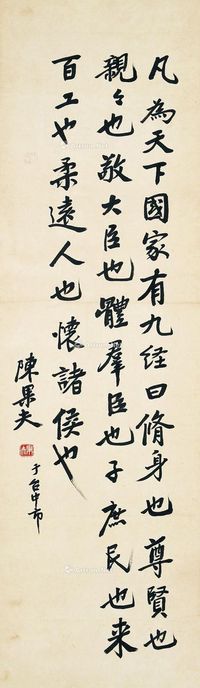 凡為天下國家有九经曰脩身也尊賢也
親々也敬大臣也體羣臣也子庶民也来
百工也柔遠人也懷諸侯也
陳果夫
于台中市